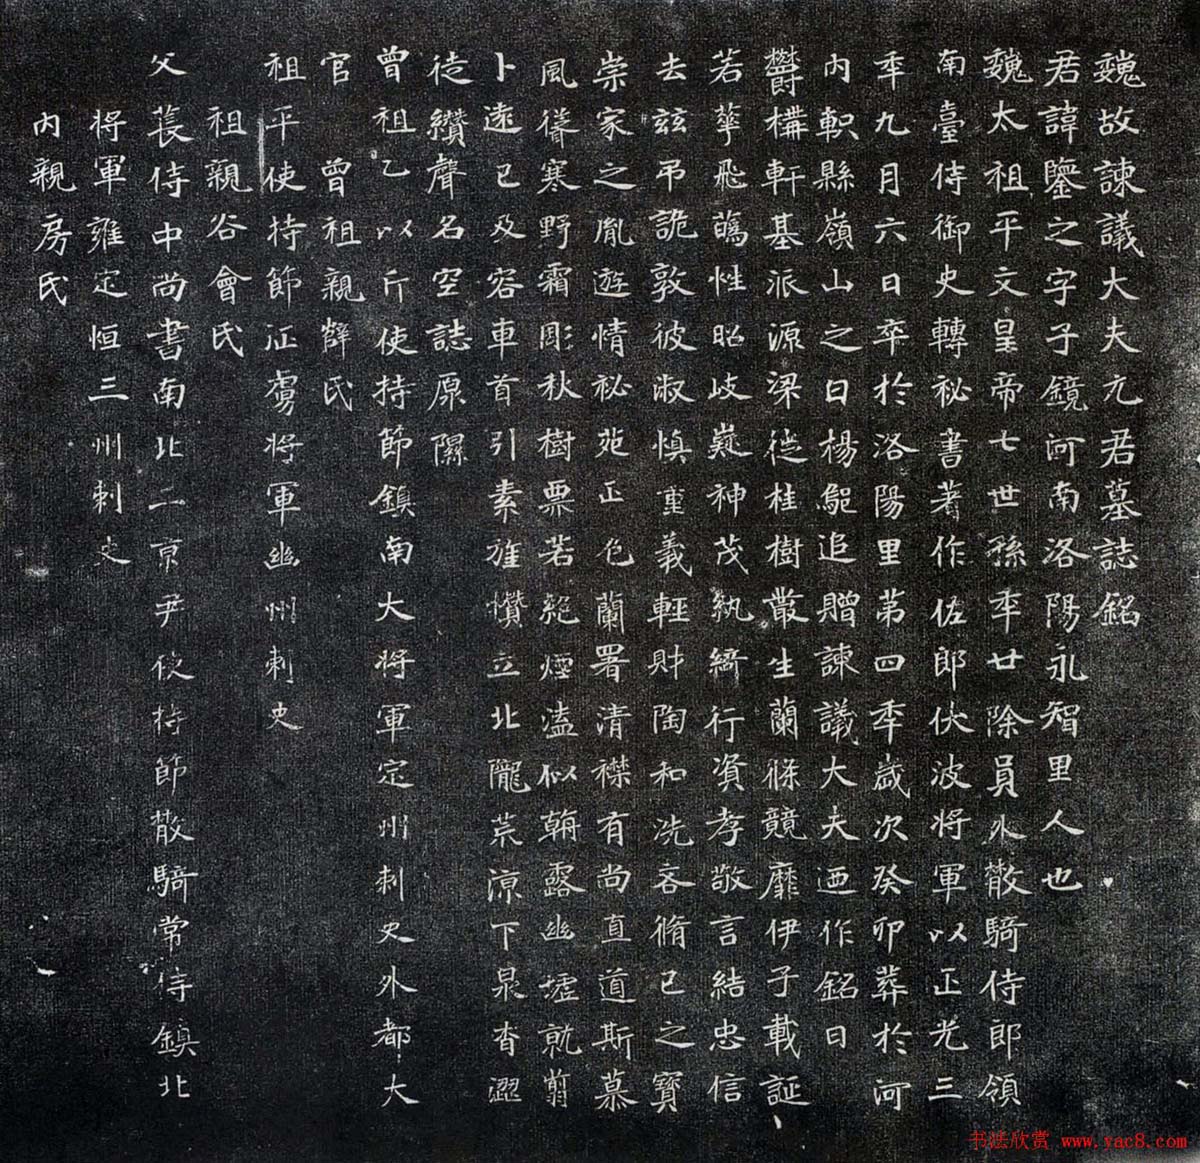 魏故諫議大夫元君墓誌銘
君諱鑒之字子鏡河南洛陽永智里人也
魏太祖平文皇帝七世孫年廿除員外散騎侍郎領
南臺侍御史轉祕書著作佐郎伏波將軍以正光三
年九月六日卒於洛陽里第四年歲次癸卯葬於河
內軹縣嶺山之曰楊駞追贈諫議大夫迺作銘曰
欝構軒基派源梁徙桂樹叢生蘭條競靡伊子載誕
若華飛蘤性昭岐嶷神茂紈綺行資孝敬言結忠信
去茲弔詭敦彼淑慎重義輕財陶和洗吝脩已之寶
崇家之胤遊情祕苑正色蘭署清襟有尚直道斯慕
風㝵寒野霜彫秋樹票若菀煙溘似朝露幽墟就翦
卜遠已及容車首引素旌攢立北隴荒涼下泉杳澀
徒纘聲名空誌原隰
曾祖乙以斤使持節鎮南大將軍定州刺史外都大
官 曾祖親薛氏
祖平使持節征虜將軍幽州刺史
祖親谷會氏
父萇侍中尚書南北二京尹使持節散騎常侍鎮北
將軍雍定恒三州刺史
內親房氏
书法欣赏 www.yac8.com